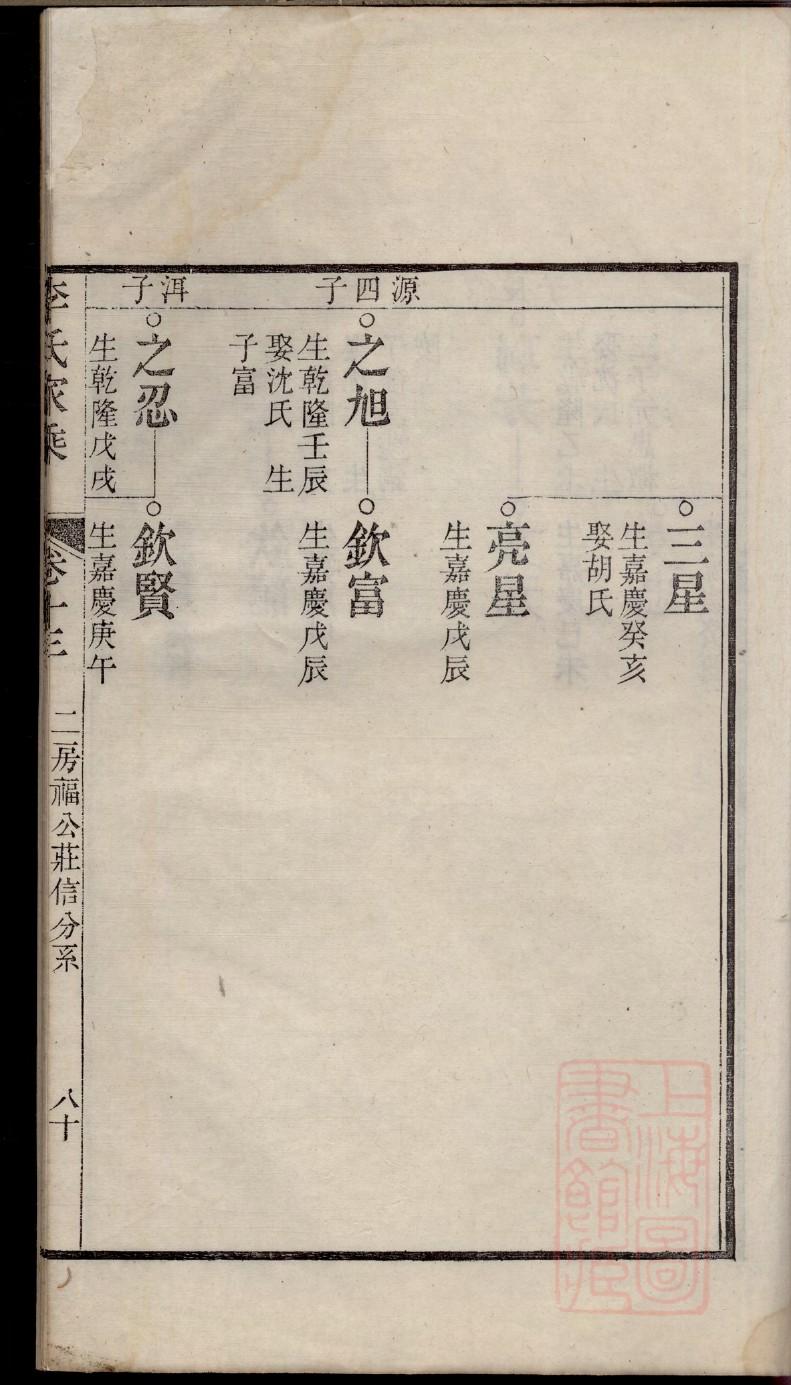 三星
生嘉慶癸亥
娶胡氏
亮星
生嘉慶戊辰
源四子
之旭
生乾隆壬辰
娶沈氏 生
子富
欽富
生嘉慶戊辰
洱子
之忍
生乾隆戊戌
欽賢
生嘉慶庚午
李氏家乘
卷十三
二房福公莊信分系
八十
上海圖書館藏